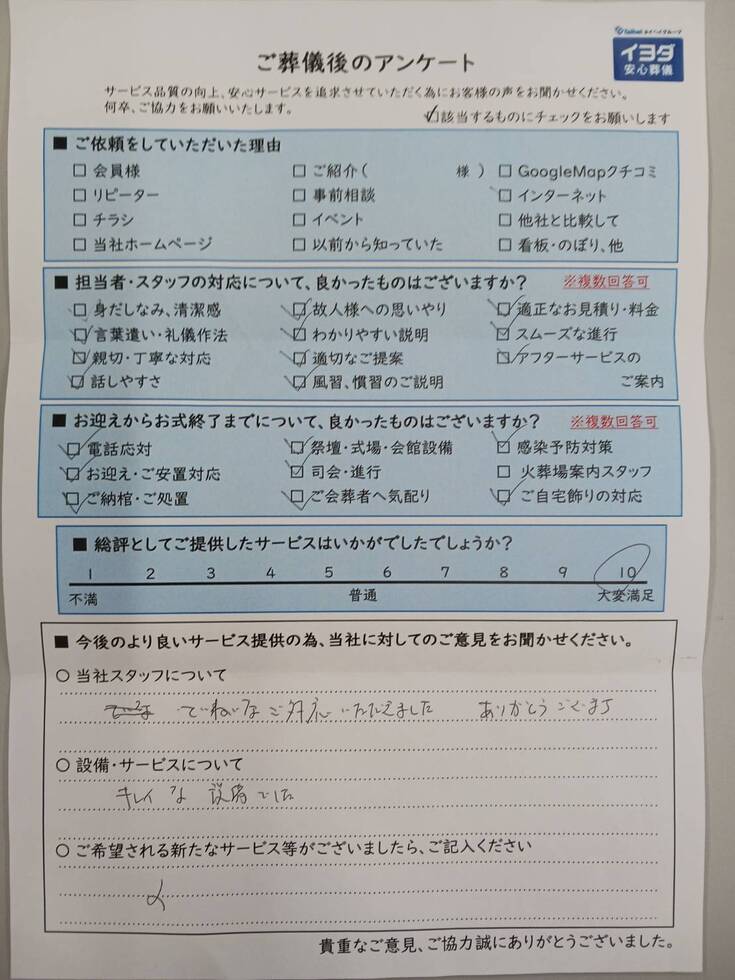 Saihei メイヘイグループ
イヨダ
安心葬儀
ご葬儀後のアンケート
サービス品質の向上、安心サービスを追求させていただく為にお客様の声をお聞かせください。
何卒、ご協力をお願いいたします。
☑該当するものにチェックをお願いします
■ ご依頼をしていただいた理由
□ 会員様 □ ご紹介( 様 ) □ GoogleMapクチコミ
□ リピーター □ 事前相談 □ インターネット
□ チラシ □ イベント □ 他社と比較して
□ 当社ホームページ □ 以前から知っていた □ 看板・のぼり、他
■ 担当者・スタッフの対応について、良かったものはございますか? ※複数回答可
☑身だしなみ、清潔感 ☑故人様への思いやり ☑適正なお見積り・料金
☑言葉遣い・礼儀作法 ☑わかりやすい説明 ☑スムーズな進行
☑親切・丁寧な対応 ☑適切なご提案 ☑アフターサービスの
☑話しやすさ ☑風習、慣習のご説明 ご案内
■ お迎えからお式終了までについて、良かったものはございますか? ※複数回答可
☑電話応対 ☑祭壇・式場・会館設備 ☑感染予防対策
☑お迎え・ご安置対応 ☑司会・進行 □ 火葬場案内スタッフ
☑ご納棺・ご処置 ☑ご会葬者へ気配り ☑ご自宅飾りの対応
■ 総評としてご提供したサービスはいかがでしたでしょうか?
1 2 3 4 5 6 7 8 9 10
不満 普通 大変満足
■ 今後のより良いサービス提供の為、当社に対してのご意見をお聞かせください。
○ 当社スタッフについて
ていねいなご対応いただきました ありがとうございます
○ 設備・サービスについて
キレイな設備でした
○ ご希望される新たなサービス等がございましたら、ご記入ください
貴重なご意見、ご協力誠にありがとうございました。